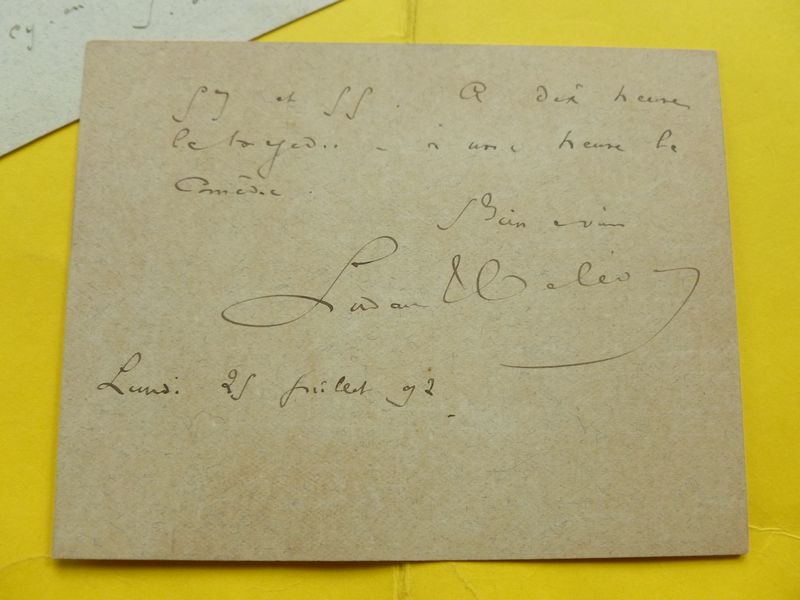 57 et 55. A dix heure
la tragédie – à une heure la
Comédie.
Bien à vous
Ludovic Halévy
Lundi 25 juillet 92